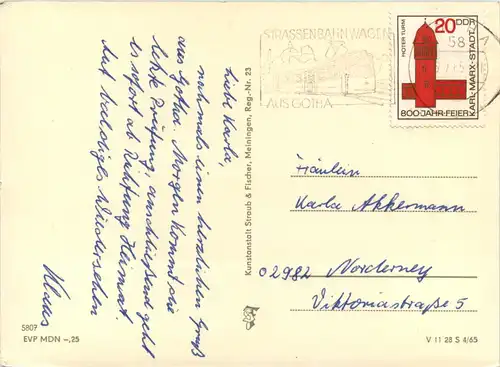 Liebe Karla,
nochmals einen herzlichen Gruß
aus Gotha. Morgen kommt die
letzte Prüfung, anschließend geht
es sofort ab Richtung Heimat.
Auf baldiges Wiedersehen
Klaus
5807
EVP MDN -,25
Kunstanstalt Straub & Fischer, Meiningen, Reg.-Nr. 23
STRASSENBAHNWAGEN
AUS GOTHA
58
ROTER TURM
20 DDR
KARL-MARX-STADT
800·JAHR·FEIER
Fräulein
Karla Akkermann
02982 Norderney
Viktoriastraße 5
V 11 28 S 4/65